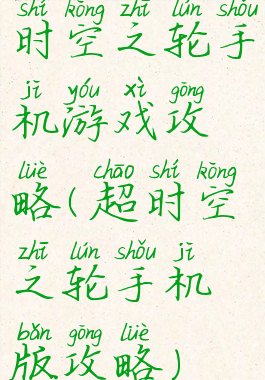 shí kōng zhī lún shǒu
时空之轮手
jī yóu xì gōng
机游戏攻
lüè chāo shí kōng
略(超时空
zhī lún shǒu jī
之轮手机
bǎn gōng lüè
版攻略)